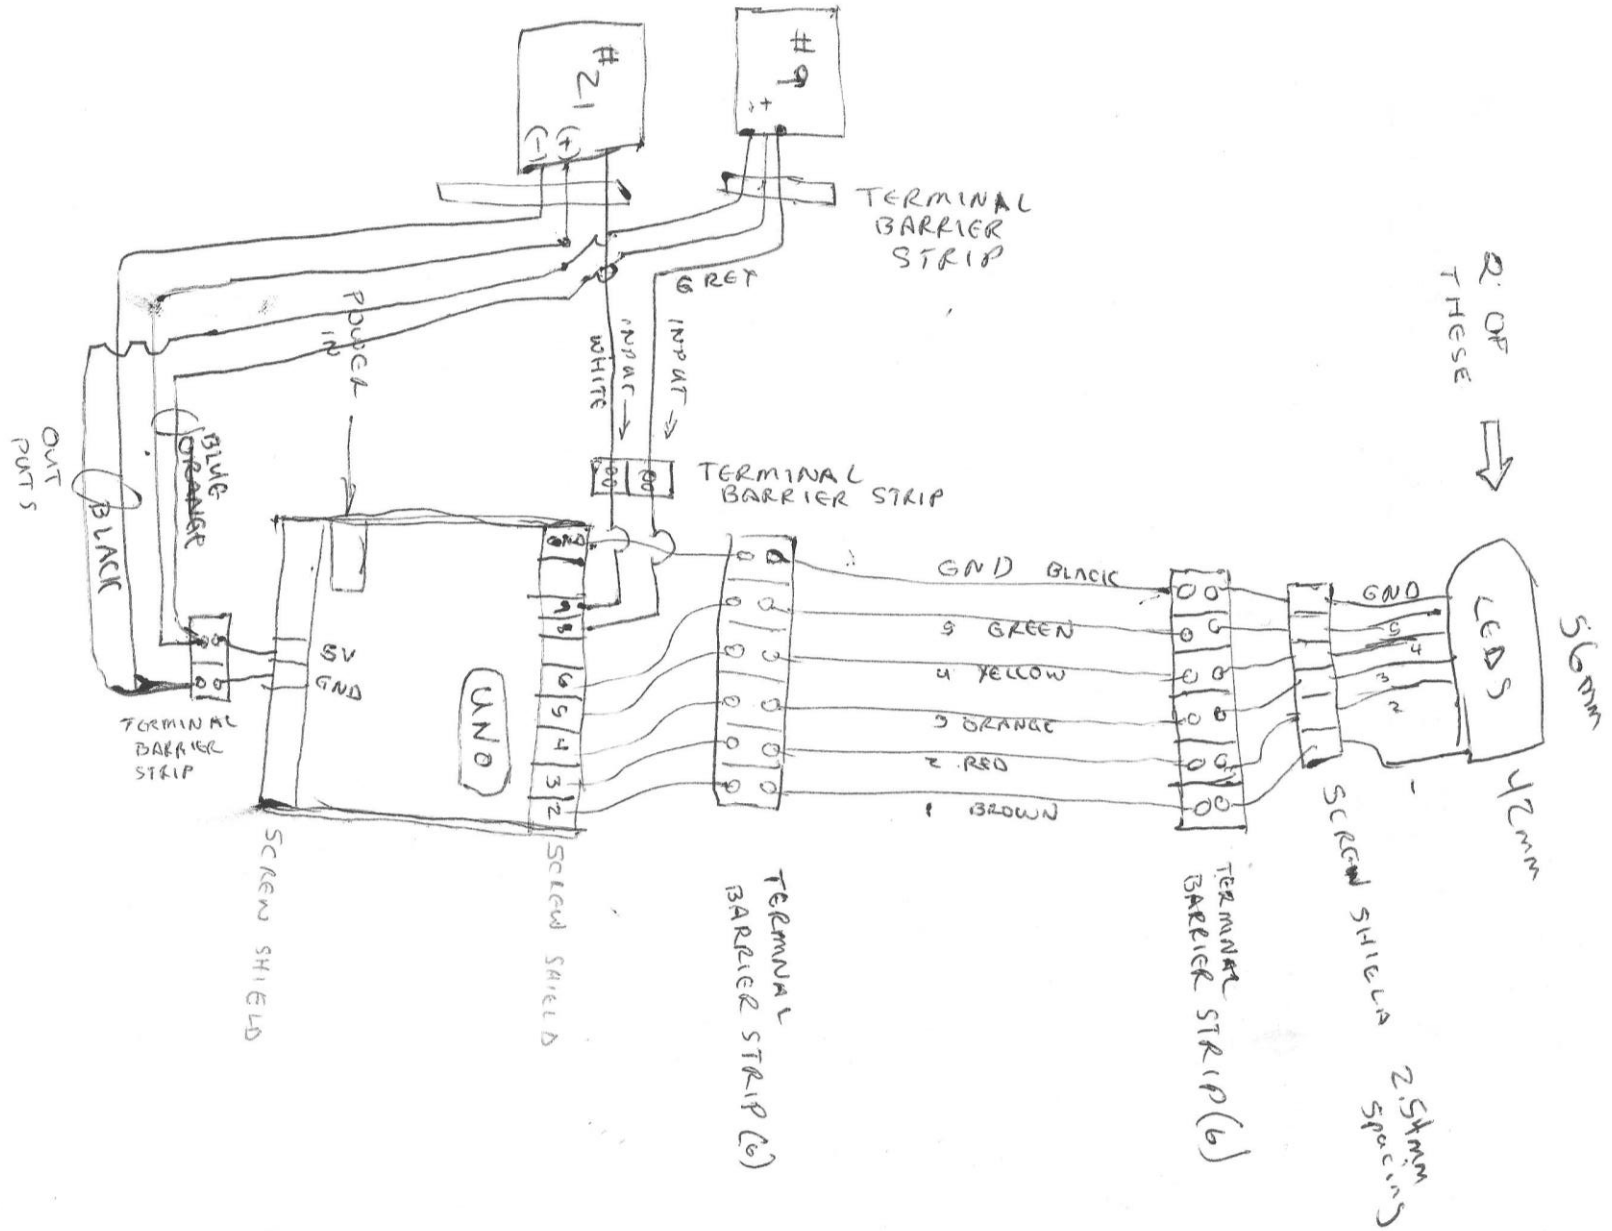 #21
(-) (+)
#9
- +
TERMINAL
BARRIER
STRIP
GREY
POWER
IN
WHITE
INPUT →
INPUT →
2 OF
THESE
OUT
PUTS
BLACK
BLUE
ORANGE
TERMINAL
BARRIER STRIP
GND
9
8
6
5
4
3
2
5V
GND
UNO
TERMINAL
BARRIER
STRIP
SCREW SHIELD
SCREW SHIELD
GND BLACK
5 GREEN
4 YELLOW
3 ORANGE
2 RED
1 BROWN
TERMINAL
BARRIER STRIP (6)
TERMINAL
BARRIER STRIP (6)
GND
5
4
3
2
1
LEDS
56mm
42mm
SCREW SHIELD 2.54mm
spacing